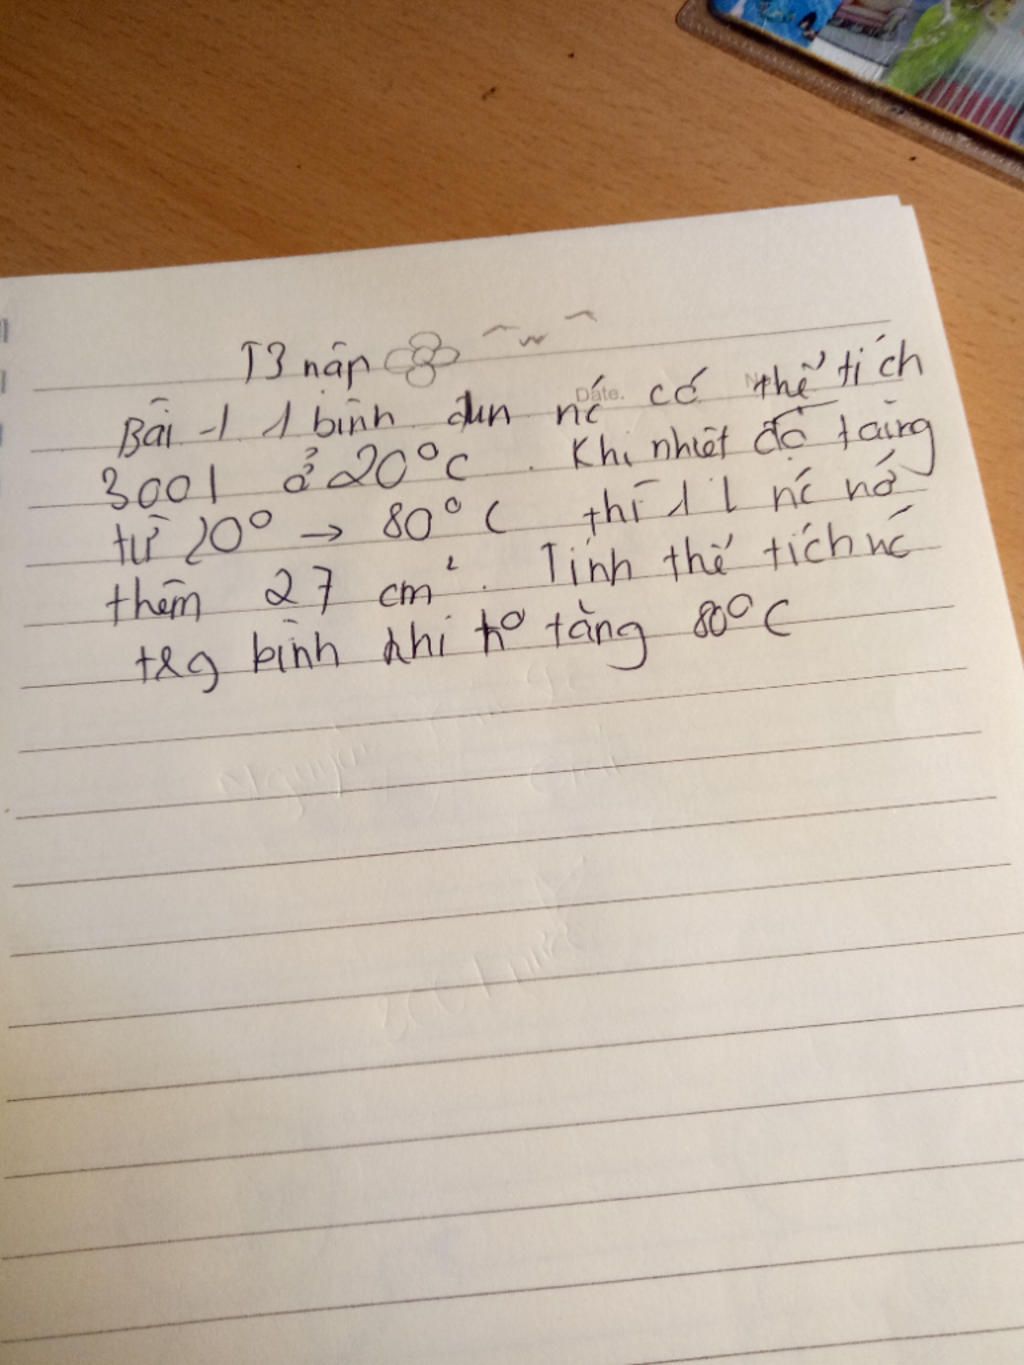 T3 nập
Date.
Bài 1 1 bình đun nć có thể tích
300l ở 20°C. Khi nhiệt độ tăng
từ 20° → 80°C thì 1 l nć nở
thêm 27 cm². Tính thể tích nć
trg bình khi to tăng 80°C